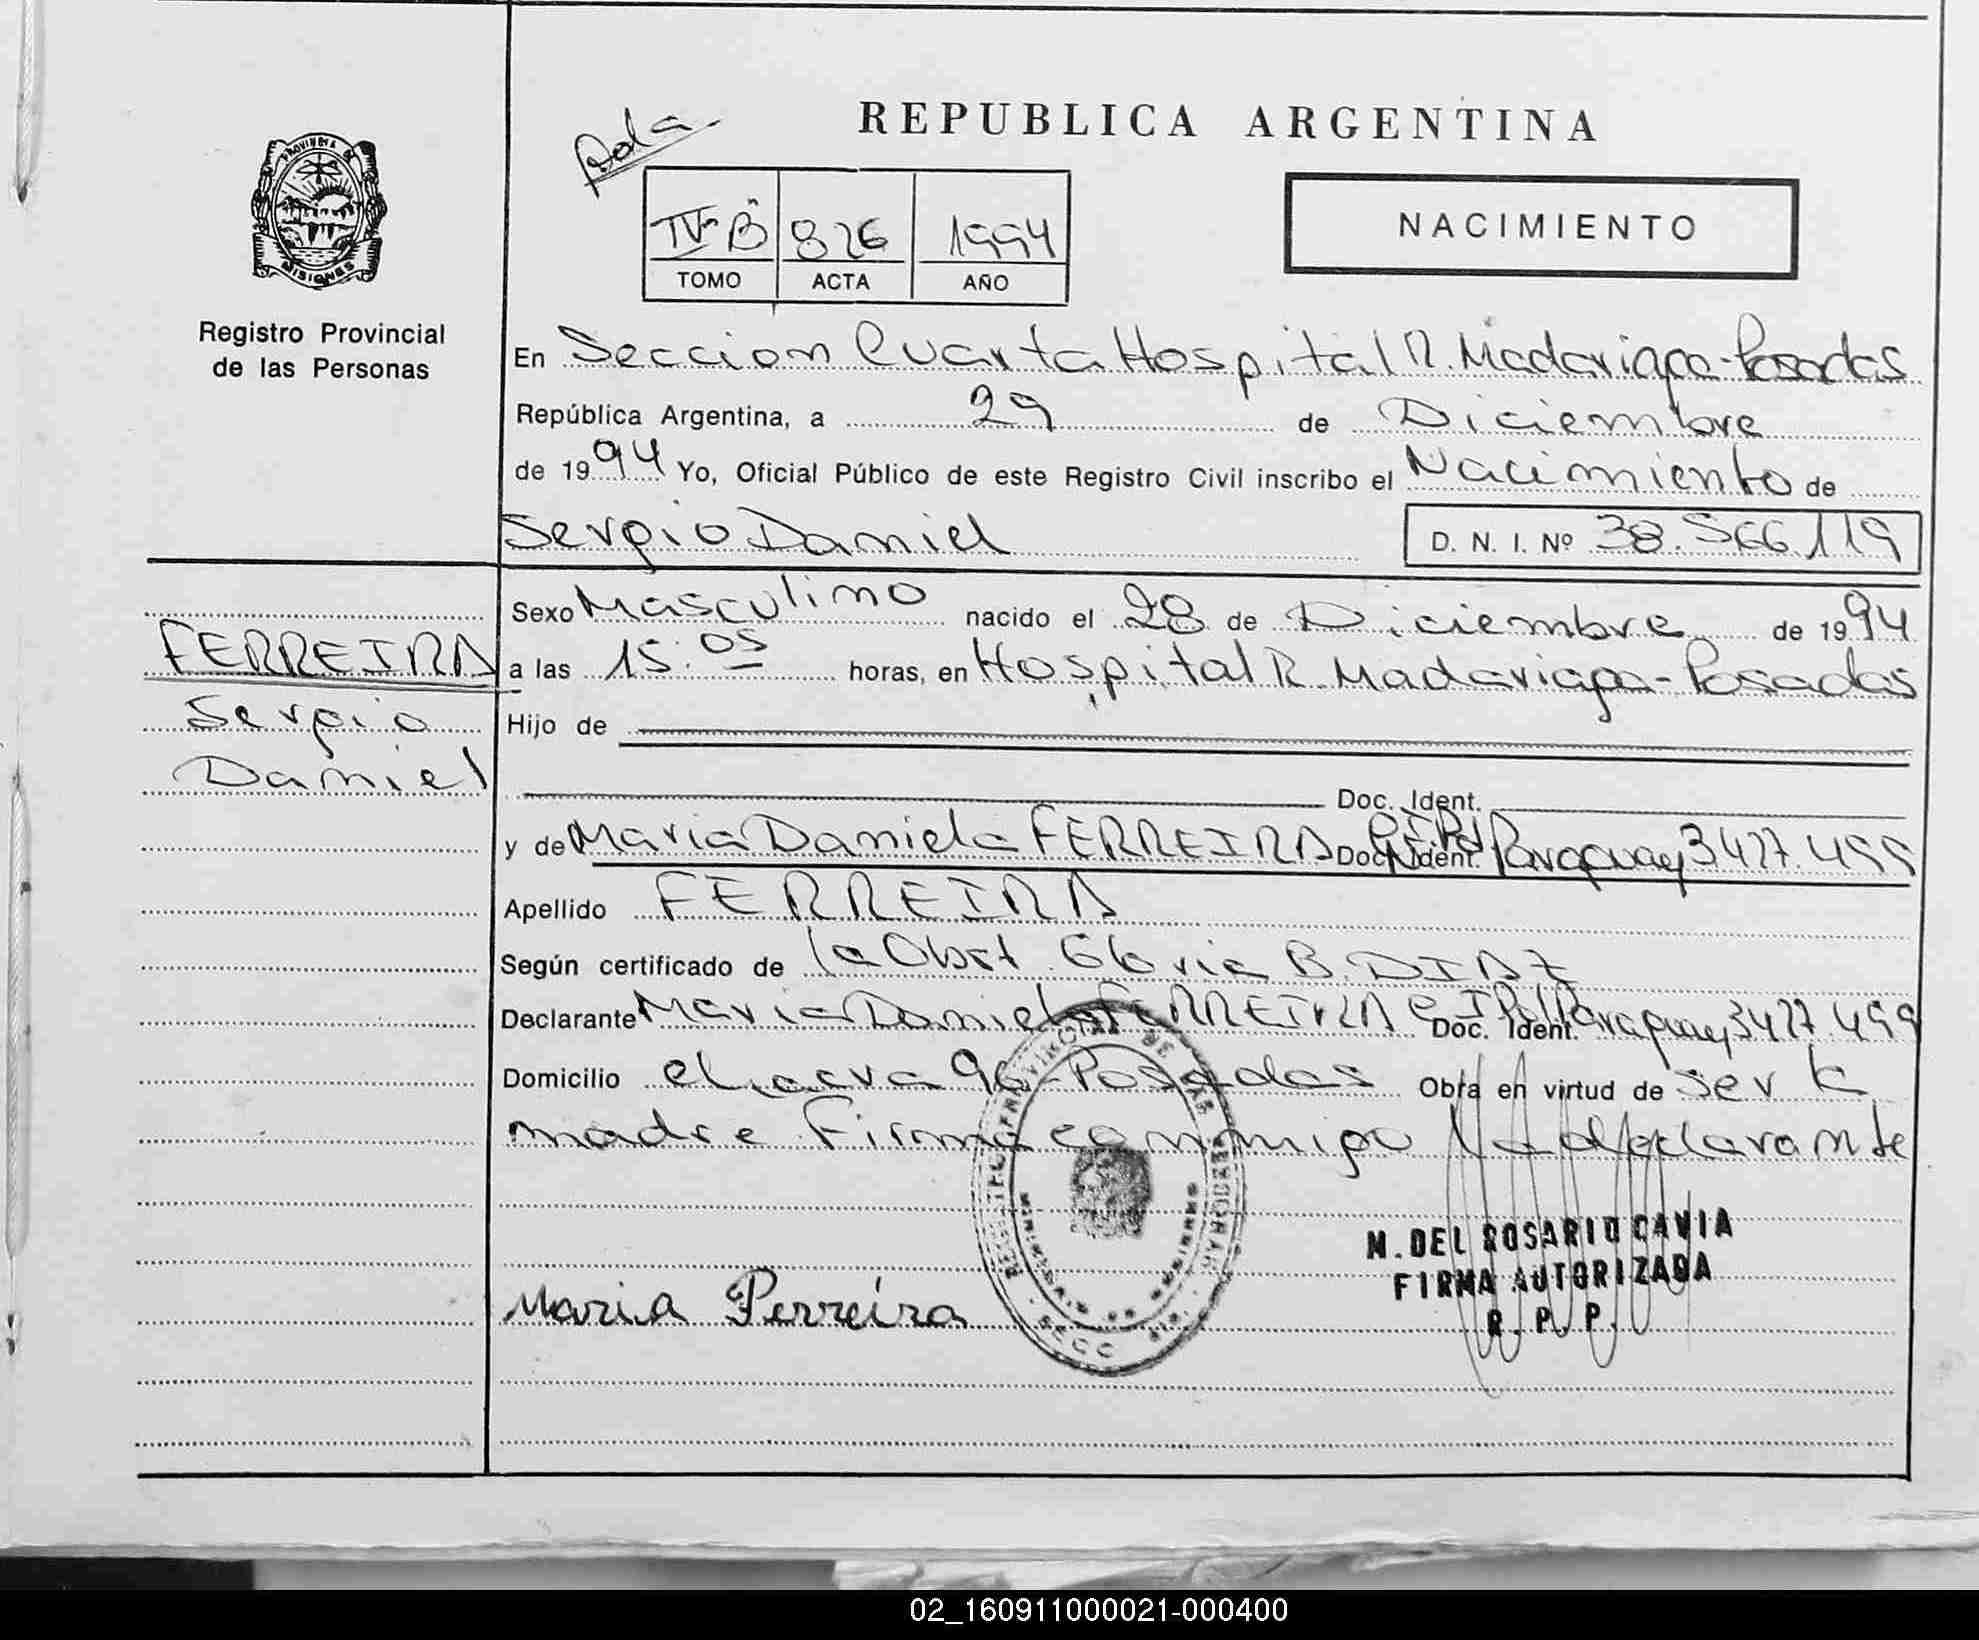 REPUBLICA ARGENTINA
PROVINCIA DE
MISIONES
Registro Provincial
de las Personas
IVº B
826
1994
TOMO
ACTA
AÑO
NACIMIENTO
En Seccion Cuarta Hospital R. Madariaga - Posadas
República Argentina, a 29 de Diciembre
de 1994 Yo, Oficial Público de este Registro Civil inscribo el Nacimiento de
Sergio Daniel
D. N. I. Nº 38.566.119
FERREIRA
Sergio
Daniel
Sexo Masculino nacido el 28 de Diciembre de 1994
a las 15:05 horas, en Hospital R. Madariaga - Posadas
Hijo de
Doc. Ident.
y de Maria Daniela FERREIRA Doc. Ident. C.I.Pol Paraguay 3427.499
Apellido FERREIRA
Según certificado de la Obst. Gloria B. DIAZ
Declarante Maria Daniela FERREIRA Doc. Ident. C.I.Pol Paraguay 3427.499
Domicilio 96 - Posadas Obra en virtud de ser la
madre Firma conmigo la declarante
M. DEL ROSARIO CAVIA
FIRMA AUTORIZADA
R. P. P.
Maria Ferreira
02_160911000021-000400